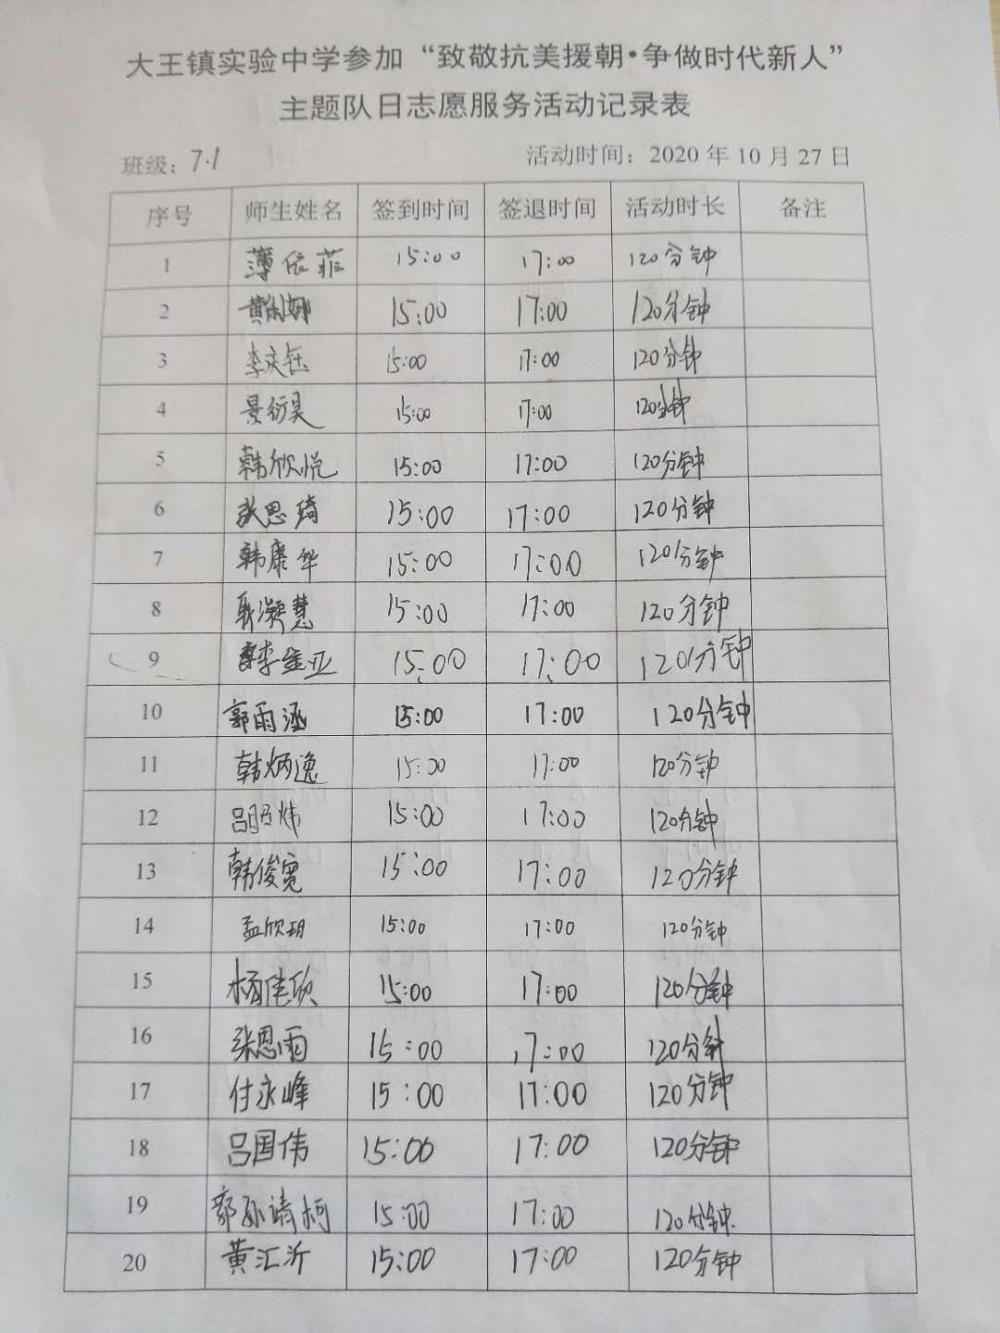 大王镇实验中学参加“致敬抗美援朝·争做时代新人”
主题队日志愿服务活动记录表
班级：7.1 活动时间：2020 年 10 月 27 日
序号 师生姓名 签到时间 签退时间 活动时长 备注
1 薄依菲 15:00 17:00 120分钟
2 黄娜 15:00 17:00 120分钟
3 李庆钰 15:00 17:00 120分钟
4 景衍昊 15:00 17:00 120分钟
5 韩欣悦 15:00 17:00 120分钟
6 张思琦 15:00 17:00 120分钟
7 韩康华 15:00 17:00 120分钟
8 耿凝慧 15:00 17:00 120分钟
9 李金亚 15:00 17:00 120分钟
10 郭雨涵 15:00 17:00 120分钟
11 韩炳逸 15:00 17:00 120分钟
12 吕炜 15:00 17:00 120分钟
13 韩俊宽 15:00 17:00 120分钟
14 孟欣玥 15:00 17:00 120分钟
15 杨佳欣 15:00 17:00 120分钟
16 张恩雨 15:00 17:00 120分钟
17 付永峰 15:00 17:00 120分钟
18 吕国伟 15:00 17:00 120分钟
19 郭孙靖柯 15:00 17:00 120分钟
20 黄汇沂 15:00 17:00 120分钟